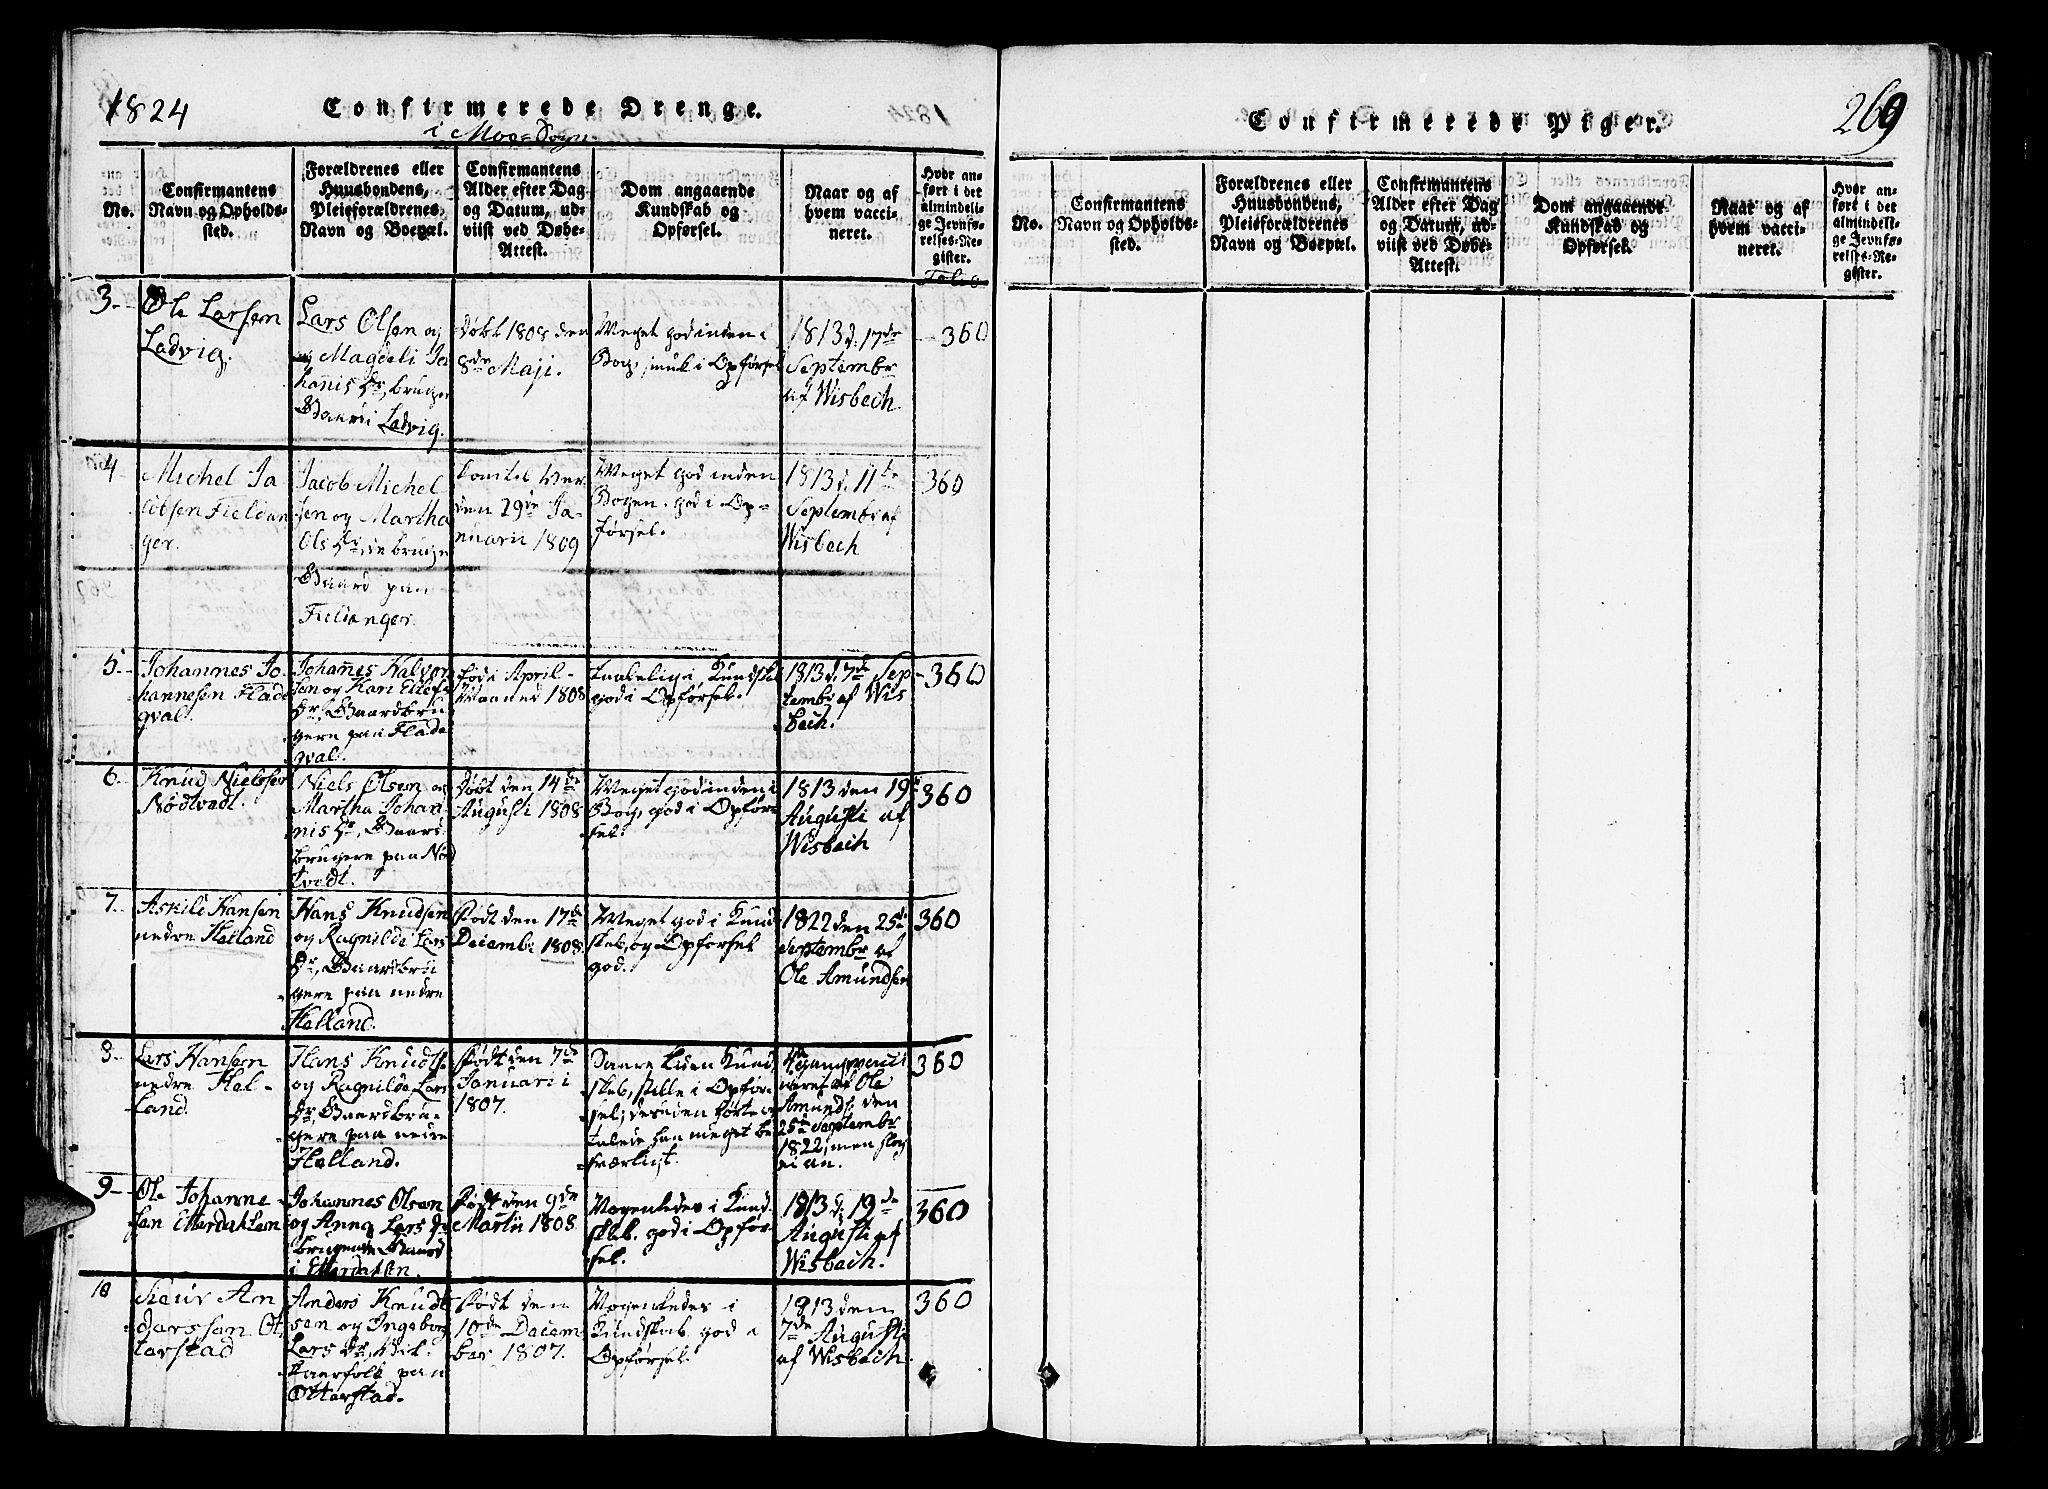 1824
Confirmerede Drenge.
i Moe=Sogn.
No.
Confirmantens
Navn og Opholds-
sted.
Forældrenes eller
Huusbondens,
Pleieforældrenes,
Navn og Boepæl.
Confirmantens
Alder efter Dag
og Datum, ud-
viist ved Døbe-
Attest.
Dom angaaende
Kundskab og
Opførsel.
Naar og af
hvem vacci-
neret.
Hvor an-
ført i det
almindeli-
ge Jevnfø-
relses-Re-
gister.
Folio
3.
Ole Larsen
Ladvig.
Lars Olsen og
Magdeli Jo
hannis Dr, bruger
Gaard i Ladvig.
Døbt 1808 den
8de Maji.
Meget god inden i
Bog, smuk i Opførsel
1813 d. 17de
Septembr
af Wisbech
360
4
Michel Ja
cobsen Fieldan
ger.
Jacob Michel
sen og Martha
Ols Dr, de bruge
Gaard paa
Fieldanger.
den 29de Ja-
nuarii 1809
Meget god inden
Bogen, god i Op-
førsel.
1813 d. 11te
Septembr af
Wisbech
360
5.
Johannes Jo
hannesen Flade
qval.
Johanes Halvor
sen og Kari Ellefs
Dr, Gaardbru
gere paa Flade
qval.
Fød i April
Maaned 1808
taalelig i Kundskab
god i Opførsel.
1813 d. 7de Sep
tembr af Wis
bech.
360
6.
Knud Nielsen
Nødtvedt.
Niels Olsen og
Martha Johan
nis Dr, Gaard
brugere paa Nød
tvedt.
Født den 14de
Augusti 1808
Meget god inden i
Bog, god i Opfør-
sel.
1813 den 19de
Augusti af
Wisbech
360
7.
Askild Hansen
nedre Helland
Hans Knudsen
og Ragnilde Lars
Dr, Gaardbru
gere paa nedre
Helland.
Født den 17de
Decembr 1808.
Meget god i Kund
skab, og Opførsel
god.
1822 den 25de
Septembr af
Ole Amundsen
360
8.
Lars Hansen
nedre Hel-
land.
Hans Knudts
og Ragnilde Lars
Dr, Gaardbru-
gere paa nedre
Helland.
Født den 7de
Januarii
1807.
Saare liden Kund
skab, stille i Opfør-
sel; desuden hørte og
talede han meget be-
sværligt.
vacci
neret af Ole
Amunds. den
25de Septembr
1822, men slog
ei an.
360
9
Ole Johanne
sen Etterdalsen
Johannes Olsen
og Anna Lars Dr
brugende Gaard
i Etterdalsen.
Født den 9de
Martii 1808.
Maadeles i Kund
skab, god i Opfør-
sel.
1813 d. 19de
Augusti af
Wisbech.
360
10
Siour An
dersen Ot
terstad
Anders Knudt
sen og Ingeborg
Lars Dr,
paa
Otterstad.
Født den
10de Decem
ber 1807.
i
Kundskab, god i
Opførsel.
1813 den
7de Augusti
af Wisbech.
360
Confirmerede Piger.
269
No.
Confirmantens
Navn og Opholds-
sted.
Forældrenes eller
Huusbondens,
Pleieforældrenes
Navn og Boepæl.
Confirmantens
Alder efter Dag
og Datum, ud-
viist ved Døbe-
Attest.
Dom angaaende
Kundskab og
Opførsel.
Naar og af
hvem vacci-
neret.
Hvor an-
ført i det
almindeli-
ge Jevnfø-
relses-Re-
gister.